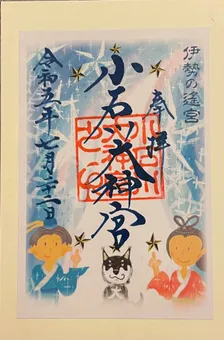 伊勢の遥宮
奉拝
小石川大神宮
令和五年七月二十一日